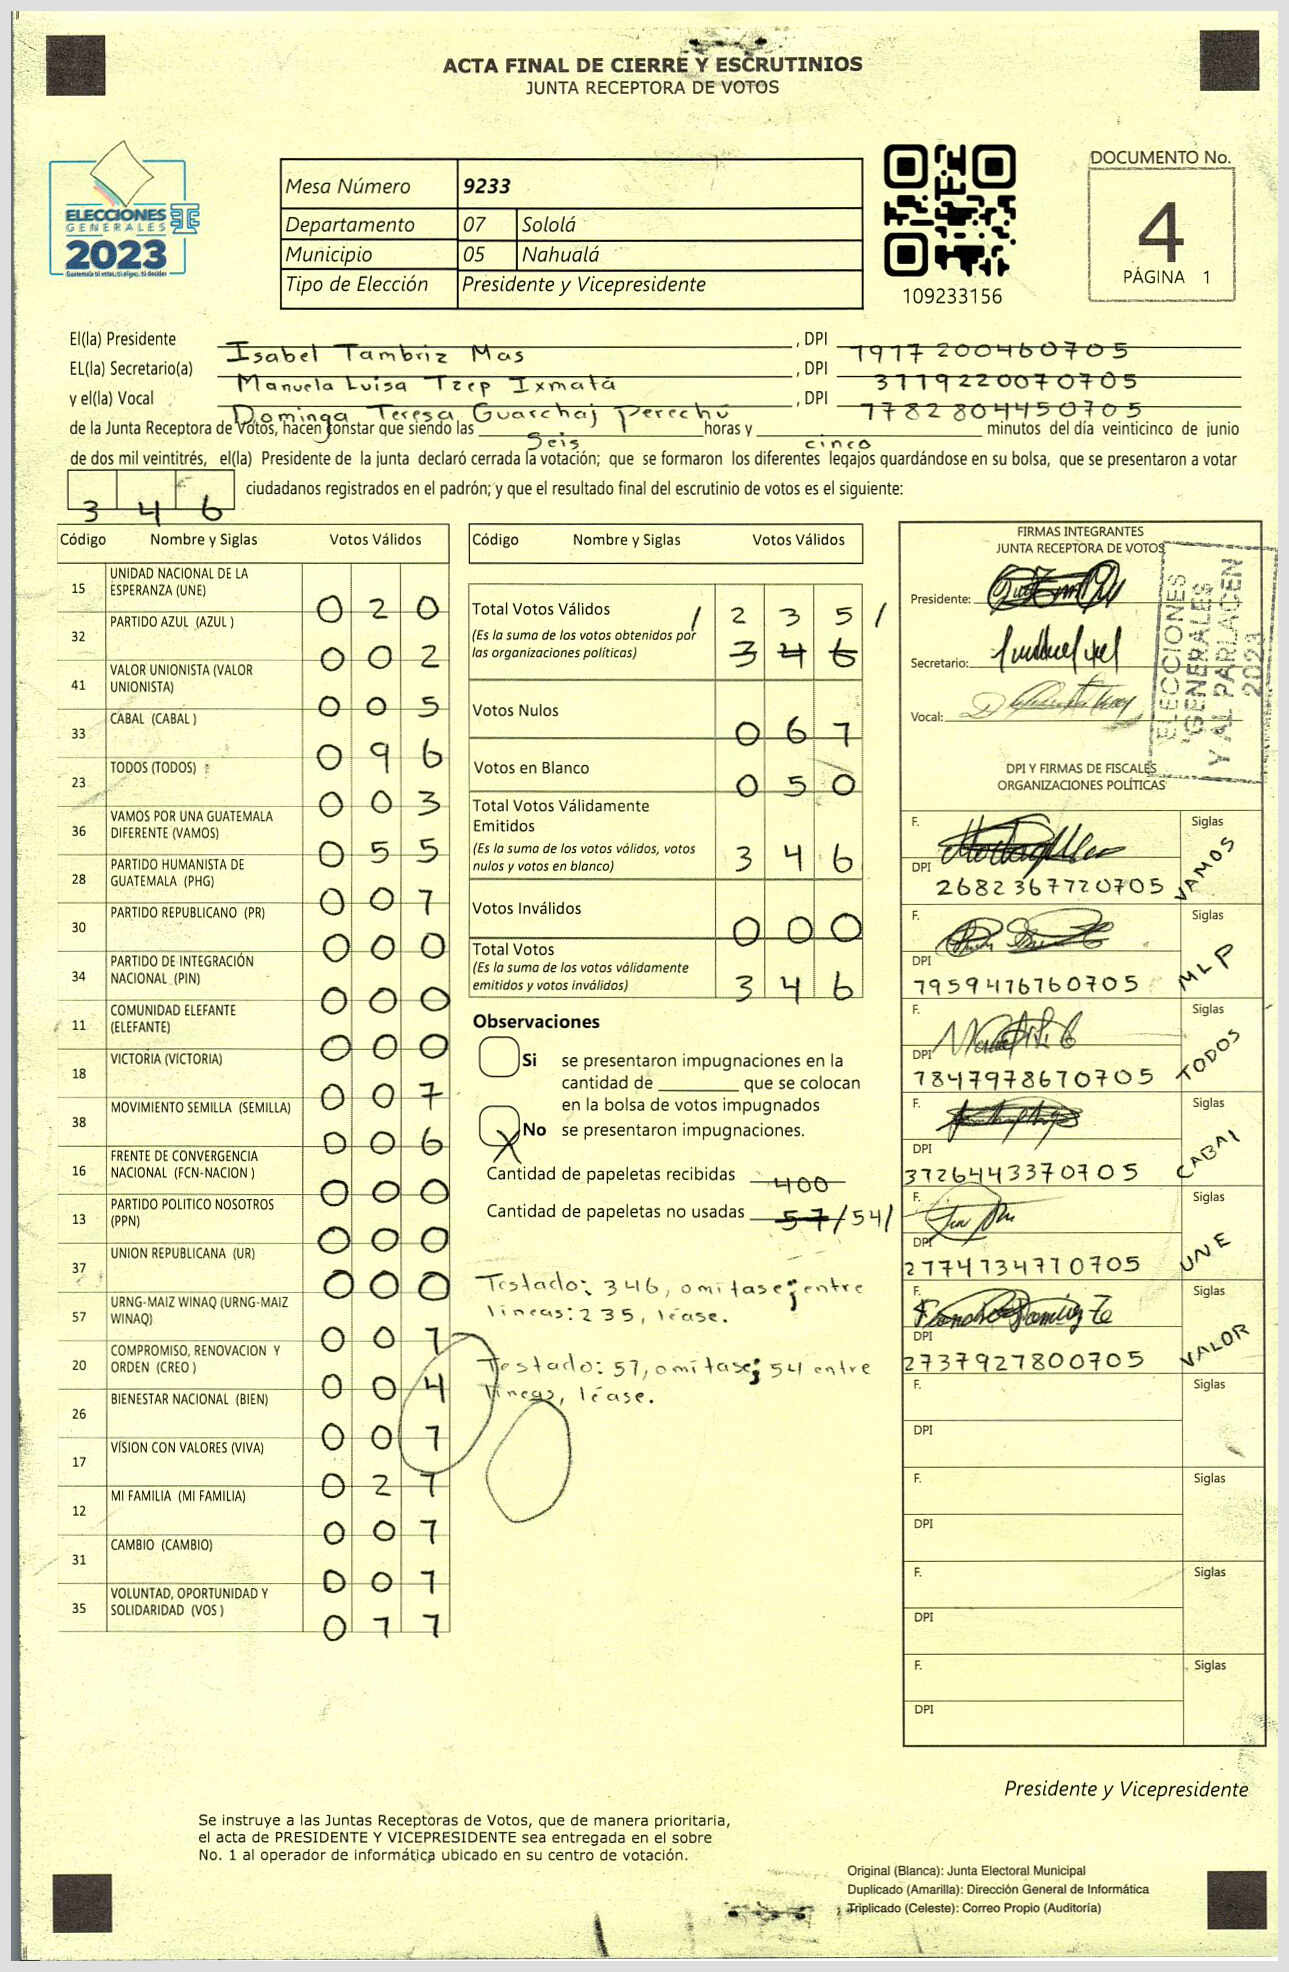 ACTA FINAL DE CIERRE Y ESCRUTINIOS
JUNTA RECEPTORA DE VOTOS
ELECCIONES
GENERALES
2023
Guatemala tú votas, tú eliges, tú decides
Mesa Número 9233
Departamento 07 Sololá
Municipio 05 Nahualá
Tipo de Elección Presidente y Vicepresidente
109233156
DOCUMENTO No.
4
PÁGINA 1
El(la) Presidente Isabel Tambriz Mas, DPI 1917 200460705
EL(la) Secretario(a) Manuela Luisa Tzep Ixmatá, DPI 3119220070705
y el(la) Vocal Dominga Teresa Guarchaj Perechú, DPI 1782804450705
de la Junta Receptora de Votos, hacen constar que siendo las seis horas y cinco minutos del día veinticinco de junio
de dos mil veintitrés, el(la) Presidente de la junta declaró cerrada la votación; que se formaron los diferentes legajos guardándose en su bolsa, que se presentaron a votar
346 ciudadanos registrados en el padrón; y que el resultado final del escrutinio de votos es el siguiente:
Código Nombre y Siglas Votos Válidos
15 UNIDAD NACIONAL DE LA ESPERANZA (UNE) 020
32 PARTIDO AZUL (AZUL ) 002
41 VALOR UNIONISTA (VALOR UNIONISTA) 005
33 CABAL (CABAL ) 096
23 TODOS (TODOS) 003
36 VAMOS POR UNA GUATEMALA DIFERENTE (VAMOS) 055
28 PARTIDO HUMANISTA DE GUATEMALA (PHG) 001
30 PARTIDO REPUBLICANO (PR) 000
34 PARTIDO DE INTEGRACIÓN NACIONAL (PIN) 000
11 COMUNIDAD ELEFANTE (ELEFANTE) 000
18 VICTORIA (VICTORIA) 007
38 MOVIMIENTO SEMILLA (SEMILLA) 006
16 FRENTE DE CONVERGENCIA NACIONAL (FCN-NACION ) 000
13 PARTIDO POLITICO NOSOTROS (PPN) 000
37 UNION REPUBLICANA (UR) 000
57 URNG-MAIZ WINAQ (URNG-MAIZ WINAQ) 001
20 COMPROMISO, RENOVACION Y ORDEN (CREO ) 004
26 BIENESTAR NACIONAL (BIEN) 001
17 VÍSION CON VALORES (VIVA) 021
12 MI FAMILIA (MI FAMILIA) 001
31 CAMBIO (CAMBIO) 001
35 VOLUNTAD, OPORTUNIDAD Y SOLIDARIDAD (VOS ) 011
Código Nombre y Siglas Votos Válidos
Total Votos Válidos / 235 /
(Es la suma de los votos obtenidos por las organizaciones políticas) 346
Votos Nulos 061
Votos en Blanco 050
Total Votos Válidamente Emitidos
(Es la suma de los votos válidos, votos nulos y votos en blanco) 346
Votos Inválidos 000
Total Votos
(Es la suma de los votos válidamente emitidos y votos inválidos) 346
Observaciones
Si se presentaron impugnaciones en la
cantidad de ________ que se colocan
en la bolsa de votos impugnados
X No se presentaron impugnaciones.
Cantidad de papeletas recibidas 400
Cantidad de papeletas no usadas 51 /54/
Testado: 346, omítase; entre
líneas: 235, léase.
Testado: 51, omítase; 54 entre
líneas, léase.
FIRMAS INTEGRANTES
JUNTA RECEPTORA DE VOTOS
Presidente:
Secretario:
Vocal:
ELECCIONES
GENERALES
Y AL PARLACEN
2023
DPI Y FIRMAS DE FISCALES
ORGANIZACIONES POLÍTICAS
F. Siglas VAMOS
DPI 2682361120705
F. Siglas MLP
DPI 1959416160705
F. Siglas TODOS
DPI 1847978610705
F. Siglas CABAL
DPI 3126443310705
F. Siglas UNE
DPI 2774134710705
F. Siglas VALOR
DPI 2737927800705
F. Siglas
DPI
F. Siglas
DPI
F. Siglas
DPI
F. Siglas
DPI
Presidente y Vicepresidente
Se instruye a las Juntas Receptoras de Votos, que de manera prioritaria,
el acta de PRESIDENTE Y VICEPRESIDENTE sea entregada en el sobre
No. 1 al operador de informática ubicado en su centro de votación.
Original (Blanca): Junta Electoral Municipal
Duplicado (Amarilla): Dirección General de Informática
Triplicado (Celeste): Correo Propio (Auditoría)